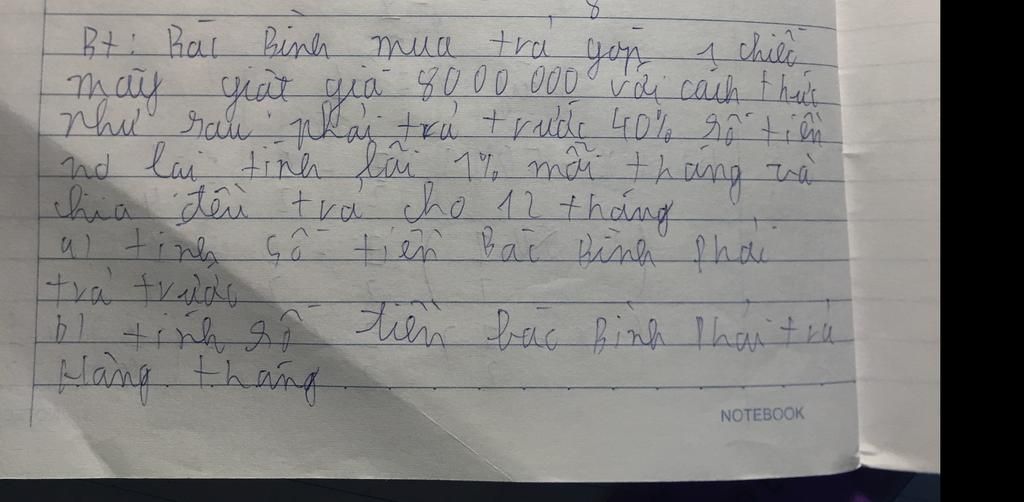 8
Bt: Bác Bình mua trả góp 1 chiếc
máy giặt giá 8000 000 với cách thức
như sau phải trả trước 40% số tiền
nợ lại tính lãi 1% mỗi tháng và
chia đều trả cho 12 tháng
a) tính số tiền Bác Bình phải
trả trước
b) tính số tiền bác Bình phải trả
Hàng tháng
NOTEBOOK